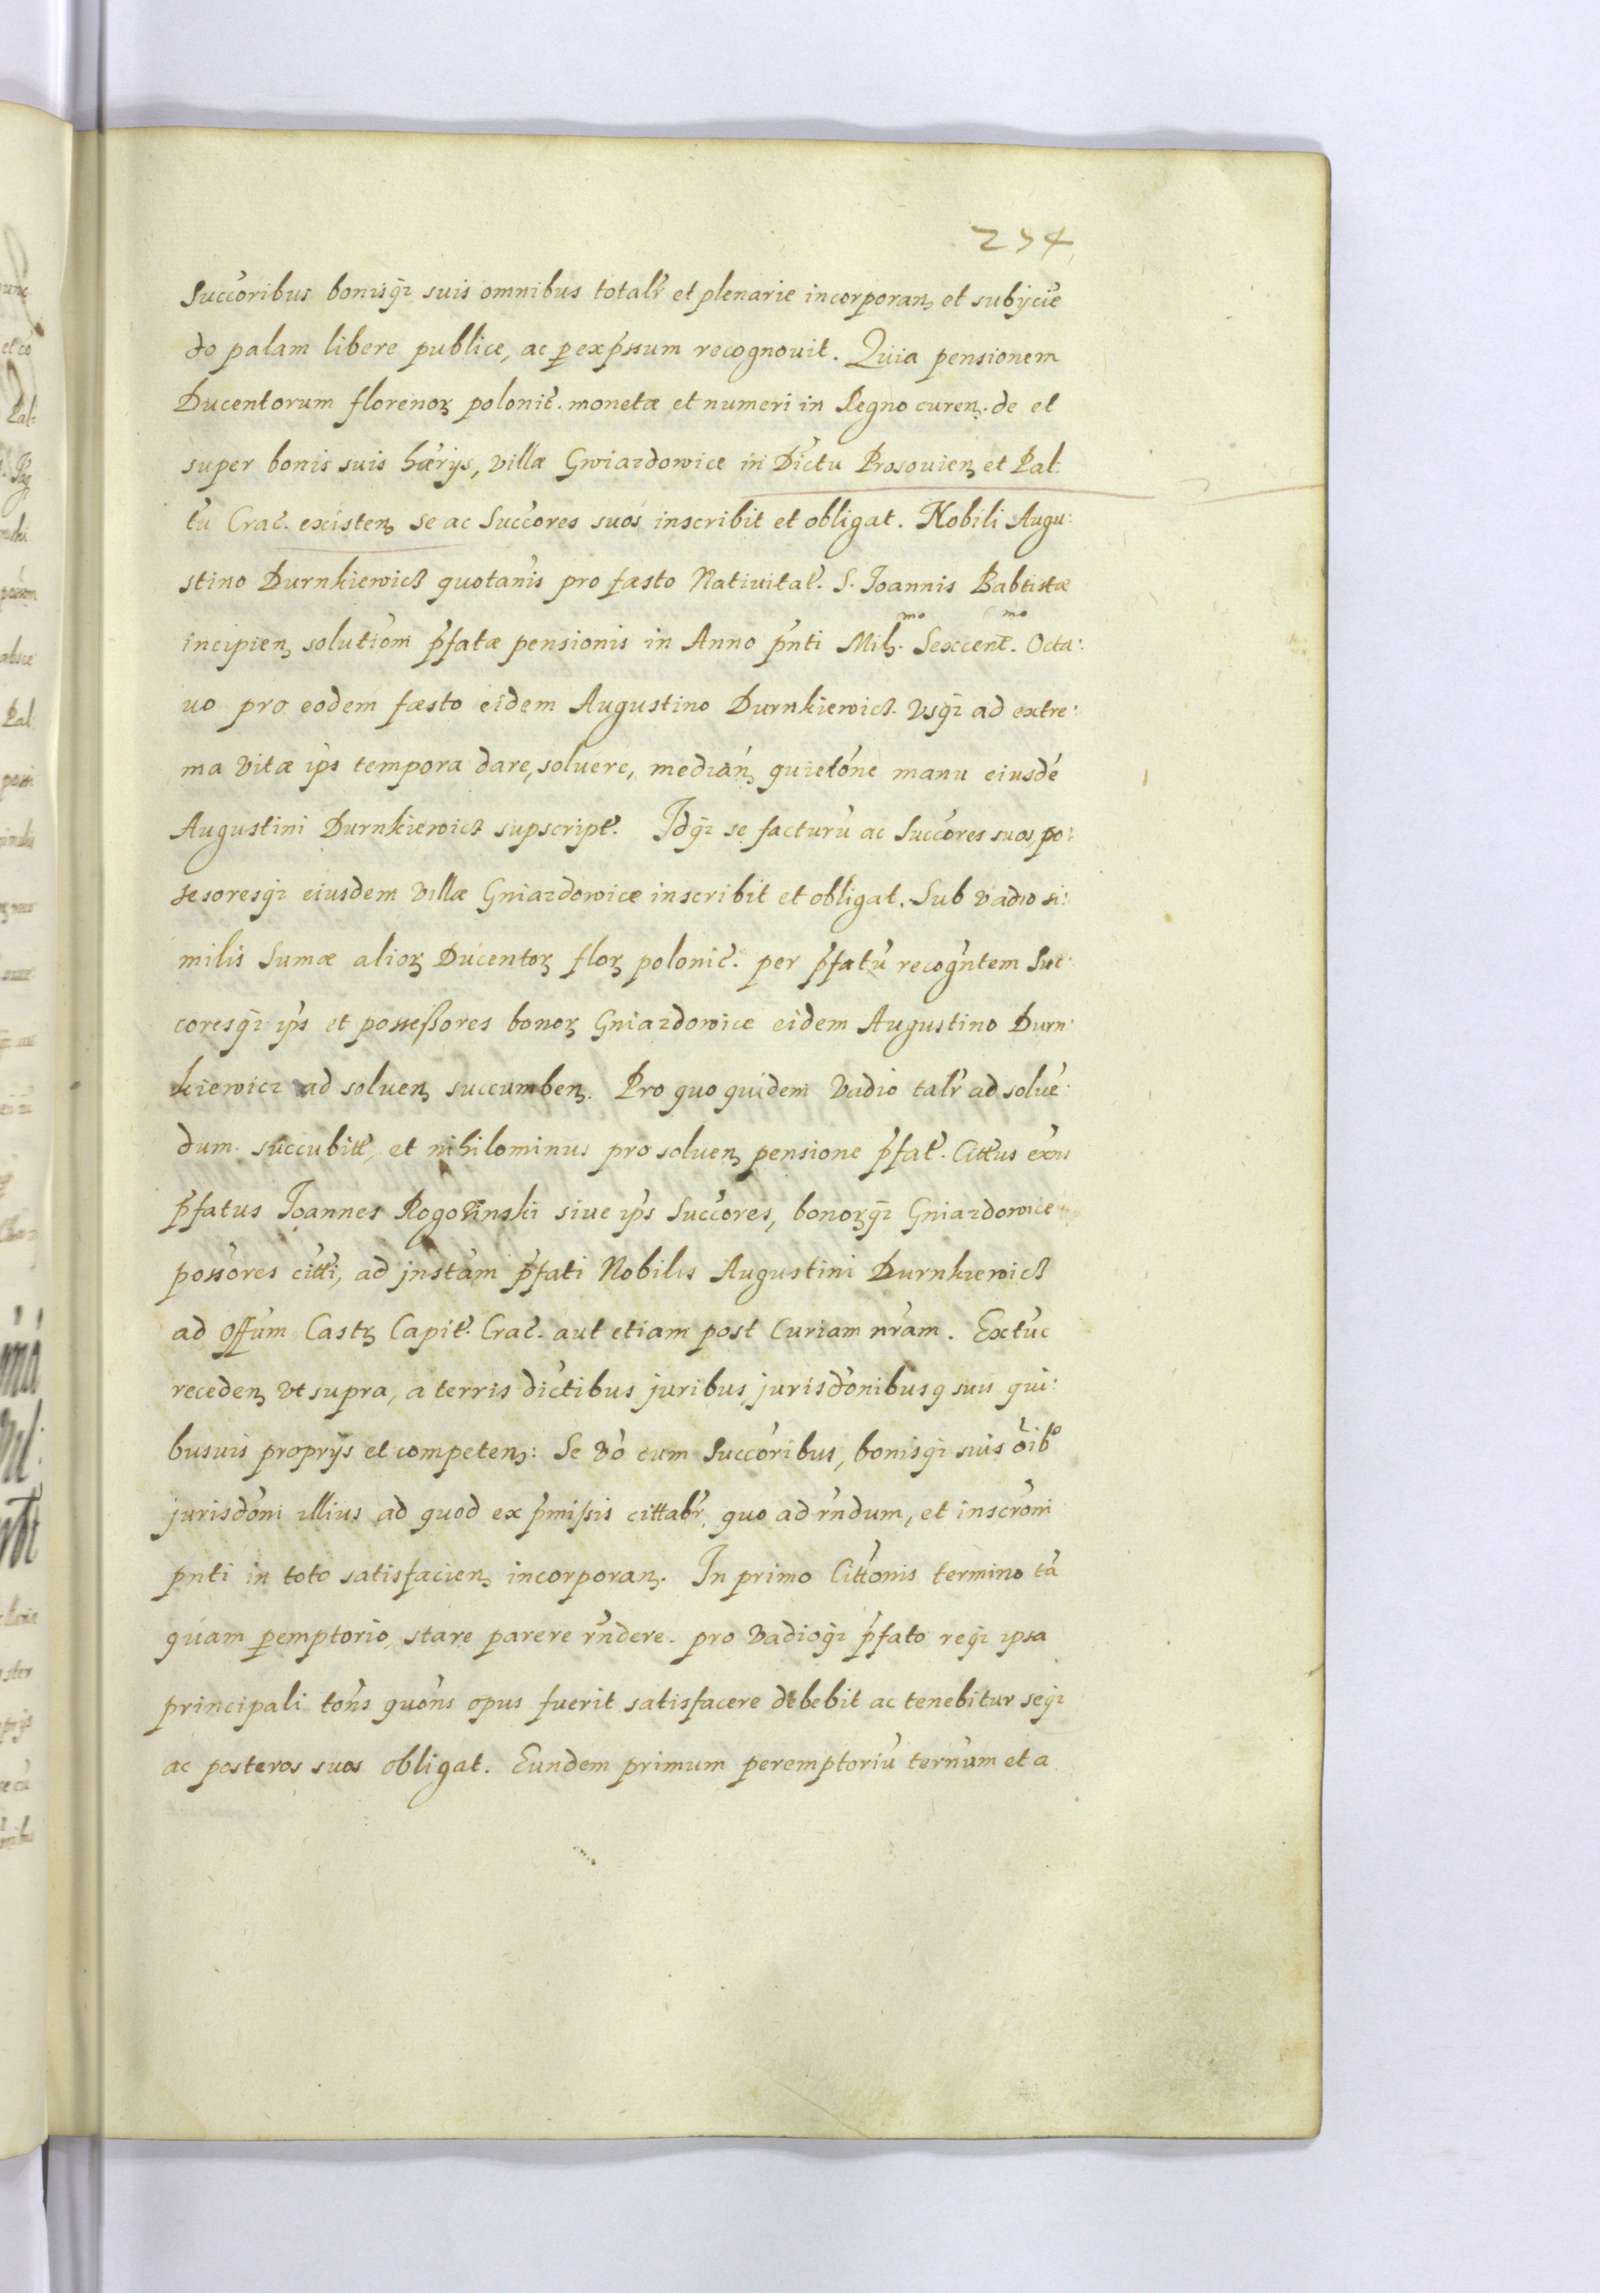 234
Succoribus bonisq3 suis omnibus totalr et plenarie incorporanʒ et subijcie
do palam libere publice, ac p expssum recognouit. Quia pensionem
Ducentorum florenorʒ polonic. monetæ et numeri in Regno curenʒ. de et
super bonis suis hærijs, villæ Gwiazdowice in Dictu Prosouienʒ et Pal:
tu Crac. existenʒ se ac Succores suos inscribit et obligat. Nobili Augu:
stino Durnkiewicz quotanis pro fæsto Natiuitat. S. Joannis Babtistæ
incipienʒ solutiom pfatæ pensionis in Anno pnti Mil͏lmo. Sexcentmo. Octa:
uo pro eodem fæsto eidem Augustino Durnkiewicz. Vsq3 ad extre:
ma vitæ ips tempora dare, soluere, medianʒ quietone manu eiusde
Augustini Durnkiewicz supscript. Idq3 se facturu ac Succores suos po:
sesoresq3 eiusdem villæ Gniazdowice inscribit et obligat. Sub vadio si:
milis Sumæ aliorʒ Ducentorʒ florʒ polonic. per pfatu recogntem Suc:
coresq3 ips et possessores bonorʒ Gniazdowice eidem Augustino Durn:
kiewicz ad soluenʒ succumbenʒ. Pro quo quidem Vadio talr ad solue:
dum succubitt, et nihilominus pro soluenʒ pensione pfat. Cittus exns
pfatus Joannes Rogovinski siue ips Succores, bonorʒq3 Gniazdowice
possores citti, ad jnstam pfati Nobilis Augustini Durnkiewicz
ad Offum Castʒ Capit. Crac. aut etiam post Curiam nram. Extuc
recedenʒ vt supra, a terris dictibus juribus, jurisdonibusq suis qui:
busuis proprijs et competenʒ: Se vo cum Succoribus, bonisq3 suis oibo
jurisdoni illius ad quod ex pmissis cittabr, quo ad rndum, et inscroni
pnti in toto satisfacienʒ incorporanʒ. In primo Cittonis termino ta
quam pemptorio, stare parere rndere. pro Vadioq3 pfato req3 ipsa
principali tons quons opus fuerit satisfacere debebit ac tenebitur seq3
ac posteros suos obligat. Eundem primum peremptoriu ternum et a